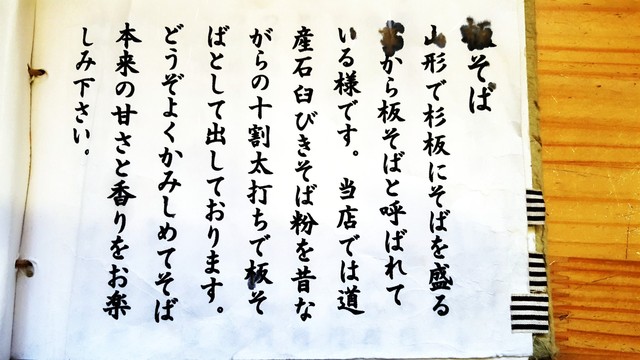 そば
山形で杉板にそばを盛る
から板そばと呼ばれて
いる様です。当店では道
産石臼びきそば粉を昔な
がらの十割太打ちで板そ
ばとして出しております。
どうぞよくかみしめてそば
本来の甘さと香りをお楽
しみ下さい。